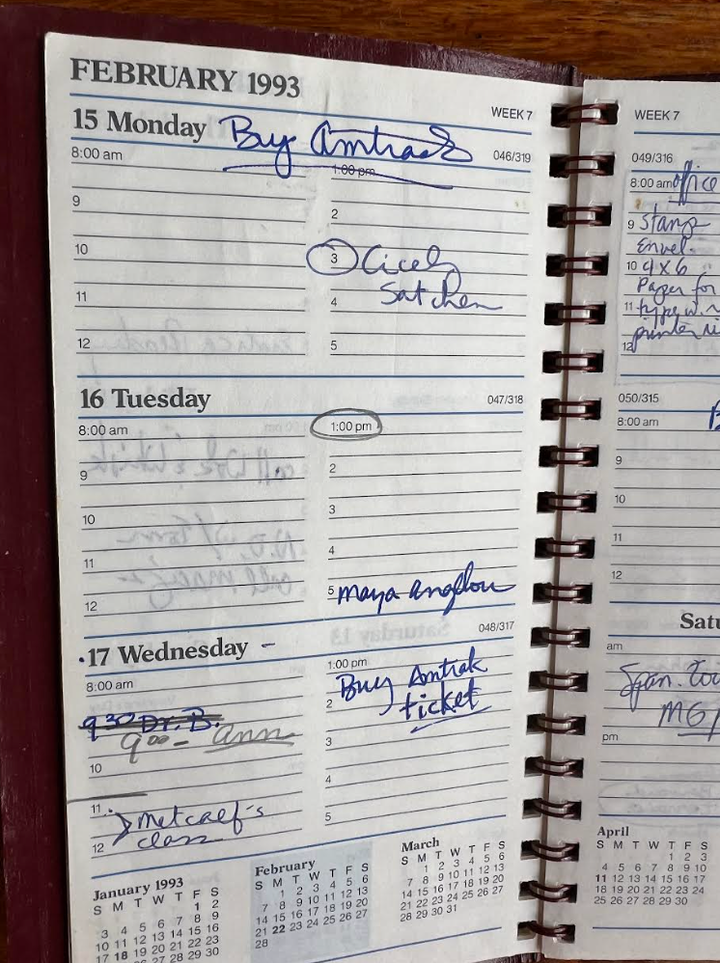 FEBRUARY 1993
WEEK 7
15 Monday Buy Amtrak 046/319
8:00 am
9
10
11
12
1:00 pm
2
3 Cicely
4 Satchen
5
16 Tuesday 047/318
8:00 am
9
10
11
12
1:00 pm
2
3
4
5 maya angelou
17 Wednesday - 048/317
8:00 am
9 30 Dr. B.
9 00 - ann
10
11 Metcalf's
12 class
1:00 pm
2 Buy Amtrak
ticket
4
5
January 1993
S M T W T F S
1 2
3 4 5 6 7 8 9
10 11 12 13 14 15 16
17 18 19 20 21 22 23
February
S M T W T F S
1 2 3 4 5 6
7 8 9 10 11 12 13
14 15 16 17 18 19 20
21 22 23 24 25 26 27
28
March
S M T W T F S
1 2 3 4 5 6
7 8 9 10 11 12 13
14 15 16 17 18 19 20
21 22 23 24 25 26 27
28 29 30 31
WEEK 7
049/316
8:00 am office
9 Stamp
Envel.
10 4x6
Paper for
11
12 printer
050/315
8:00 am
9
10
11
12
am
MG/
pm
April
S M T W T
1 2 3
4 5 6 7 8 9 10
11 12 13 14 15 16 17
18 19 20 21 22 23 24
25 26 27 28 29 30